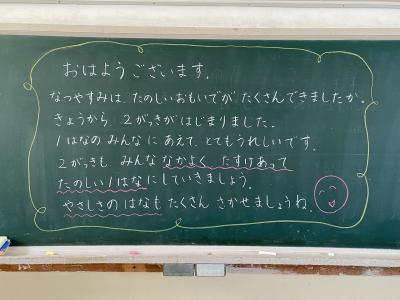 おはようございます.
なつやすみは、たのしいおもいでが たくさんできましたか。
きょうから、2がっきがはじまりました。
1はなの みんなに あえて、とてもうれしいです。
2がっきも みんな なかよく たすけあって
たのしい1はなにしていきましょう。
やさしさの はなも たくさん さかせましょうね.